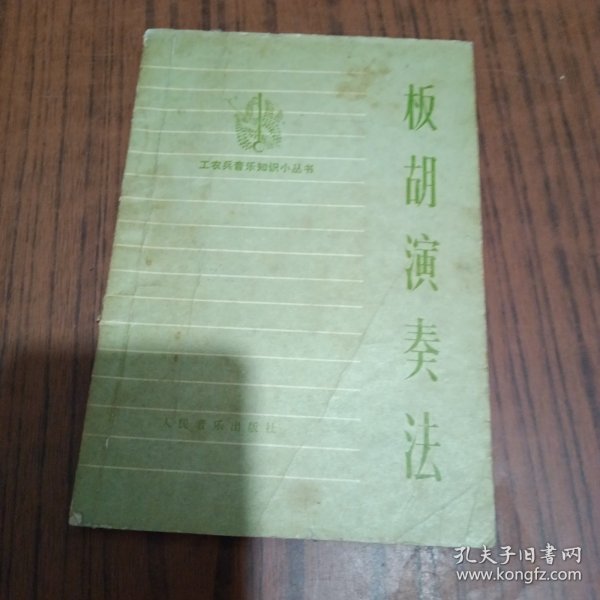 工农兵音乐知识小丛书
板胡演奏法
人民音乐出版社
孔夫子旧书网
www.kongfz.com